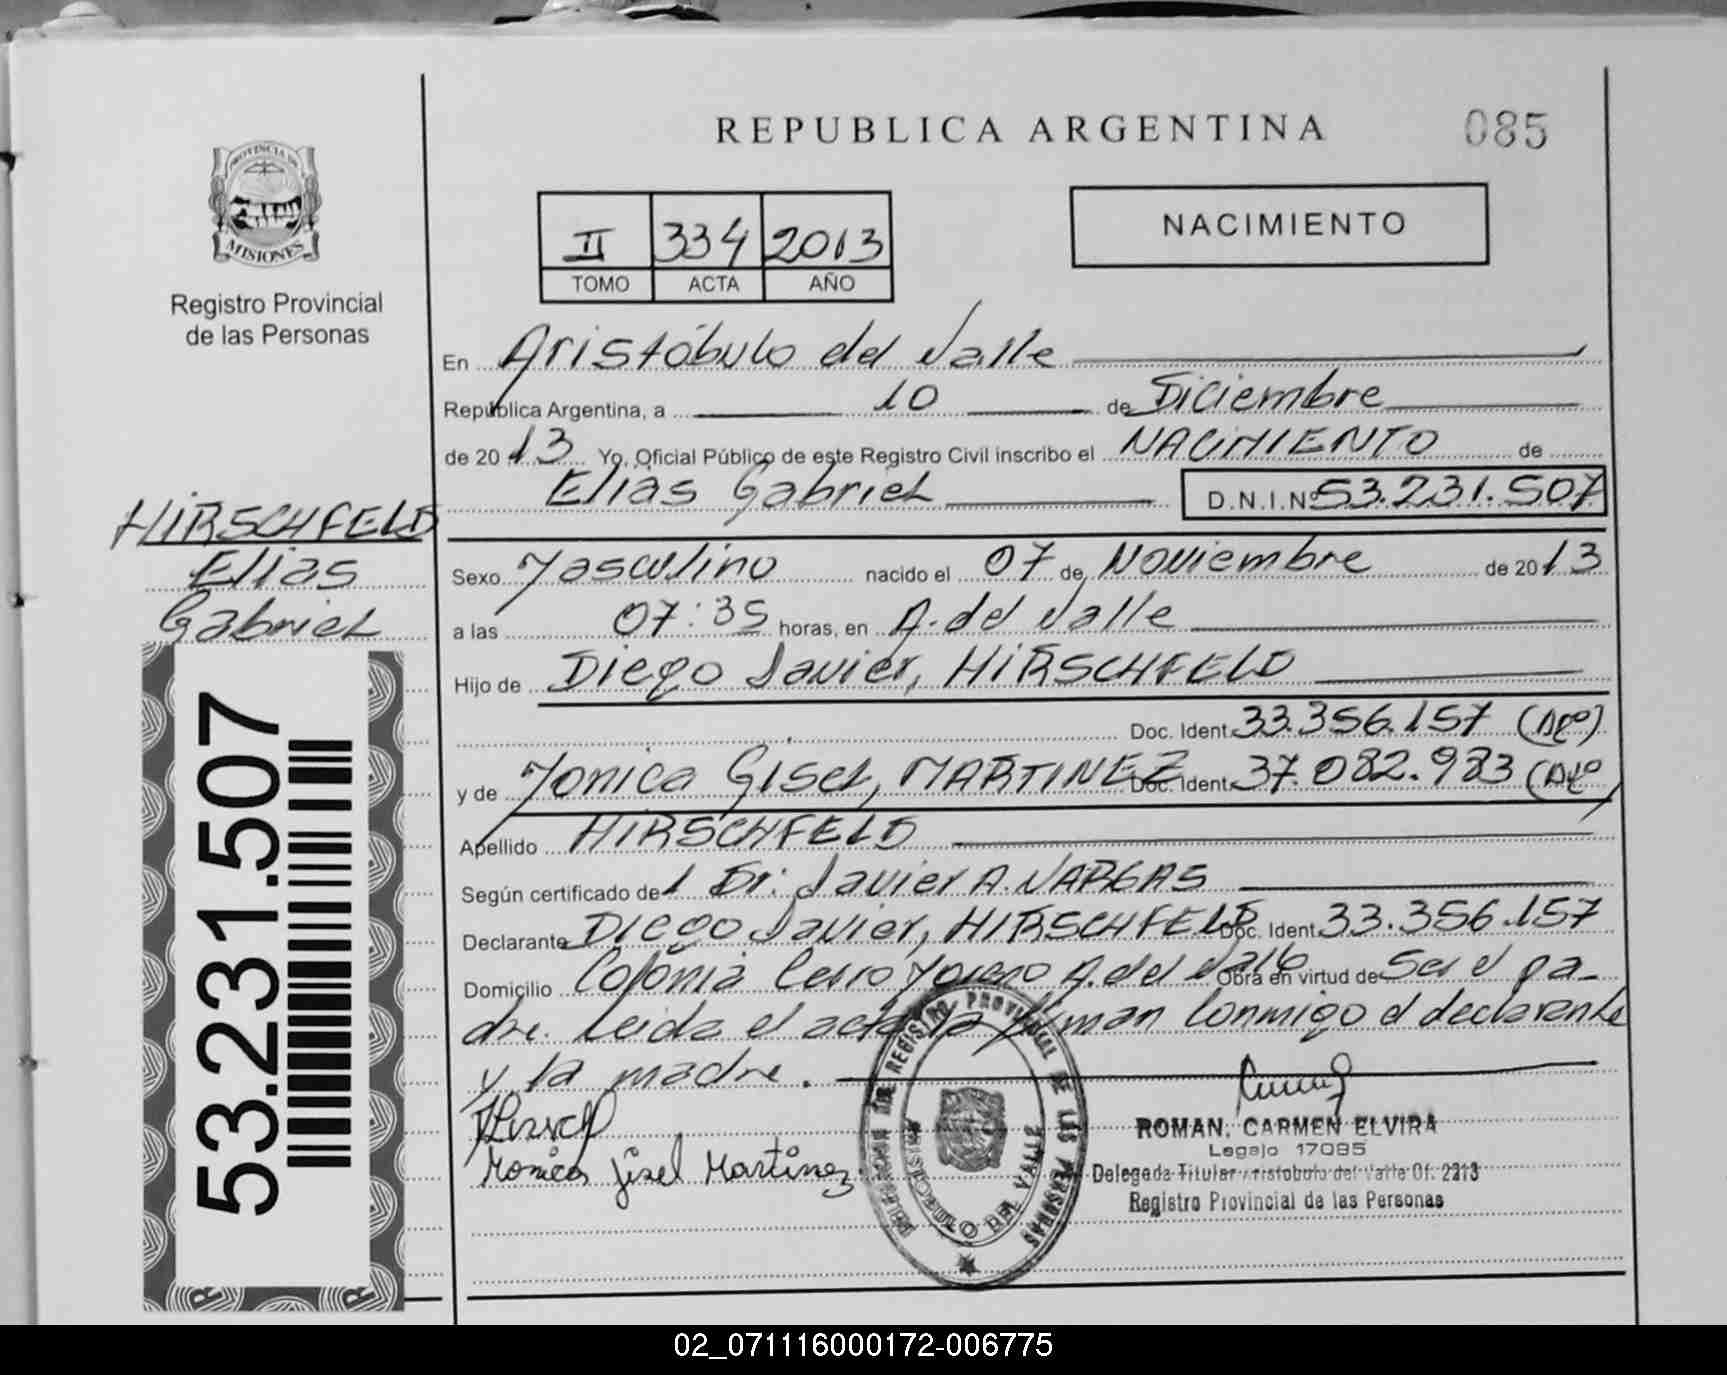 REPUBLICA ARGENTINA
085
PROVINCIA DE
MISIONES
Registro Provincial
de las Personas
II 334 2013
TOMO ACTA AÑO
NACIMIENTO
En Aristóbulo del Valle
República Argentina, a 10 de Diciembre
de 2013 Yo, Oficial Público de este Registro Civil inscribo el NACIMIENTO de
Elias Gabriel D.N.I.Nº 53.231.507
HIRSCHFELD
Elias
Gabriel
Sexo Masculino nacido el 07 de Noviembre de 2013
a las 07:35 horas, en A. del Valle
Hijo de Diego Javier, HIRSCHFELD
Doc. Ident. 33.356.157 (Aº)
y de Monica Gisel, MARTINEZ Doc. Ident. 37.082.983
Apellido HIRSCHFELD
Según certificado del Dr: Javier A. VARGAS
Declarante Diego Javier, HIRSCHFELD Doc. Ident. 33.356.157
Domicilio Colonia Cerro Moreno A. del Valle Obra en virtud de Ser el pa-
dre. Leida el acta la firman conmigo el declarante
y la madre.
Monica Gisel Martinez
DELEGACION DE REGISTRO PROVINCIAL DE LAS PERSONAS
ARISTOBULO DEL VALLE
ROMAN, CARMEN ELVIRA
Legajo 17095
Delegada Titular Aristobulo del Valle Of. 2213
Registro Provincial de las Personas
53.231.507
02_071116000172-006775